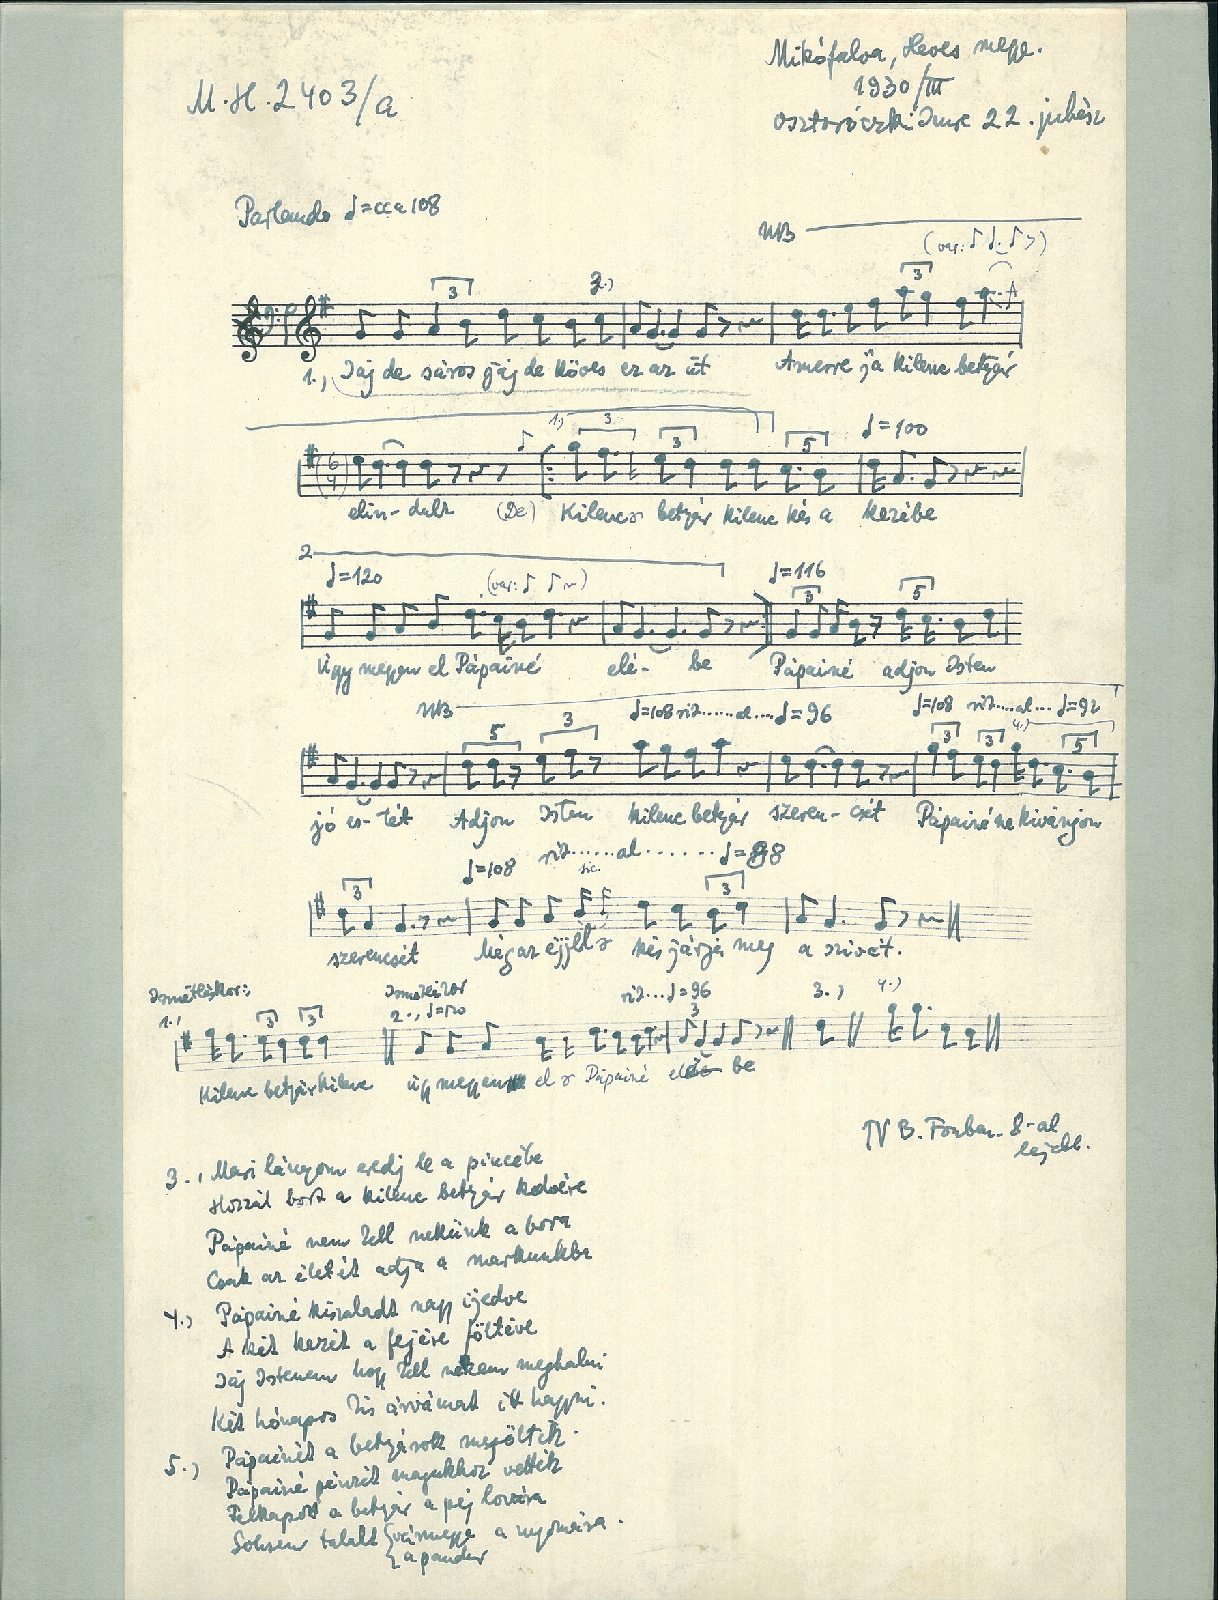 M.H.2403/a
Mikófalva, Heves megye.
1930/III
Osztoróczki Imre 22. juhász
Parlando ♩=cca 108
NB
(var: )
3 2.) 3
1., Jáj de sáros jáj de köves ez az út Amerre ja kilenc betyár
1, 3 3 5 ♩=100
6/4
elin- dult (De) Kilenc betyár kilenc kés a kezébe
2
♩=120 (var: ) ♩=116
3 5
Úgy megyen el Pápainé elé- be Pápainé adjon Isten
NB 5 3 ♩=108 rit......al....♩=96 ♩=108 rit....al....♩=92
3 3 4.) 5
jó es- tét Adjon Isten kilenc betyár szeren- csét Pápainé ne kivánjon
♩=108 rit......al.......♩=88
sic.
3 3
szerencsét Még az éjjel kés járja meg a szivét.
Ismétléskor:
1., 3 3
Ismétléskor
2., ♩=120 rit...♩=96 3 3., 4.,
Kilenc betyár kilenc úgy megyen el Pápainé elé be
IV B. Fonban 8-al
lejebb.
3., Mari lányom eredj le a pincébe
Hozzál bort a kilenc betyár kedvére
Pápainé nem kell nekünk a bora
Csak az életét adja a markunkba
4., Pápainé kiszaladt nagy ijedve
A két kezét a fejére föltéve
Jáj Istenem hogy kell nekem meghalni
Két hónapos kis árvámat itt hagyni.
5., Pápainét a betyárok megölték.
Pápainé pénzét magukhoz vették
Felkapott a betyár a pej lovára
Sohsem talált {vármegye a nyomára.
{a pandur